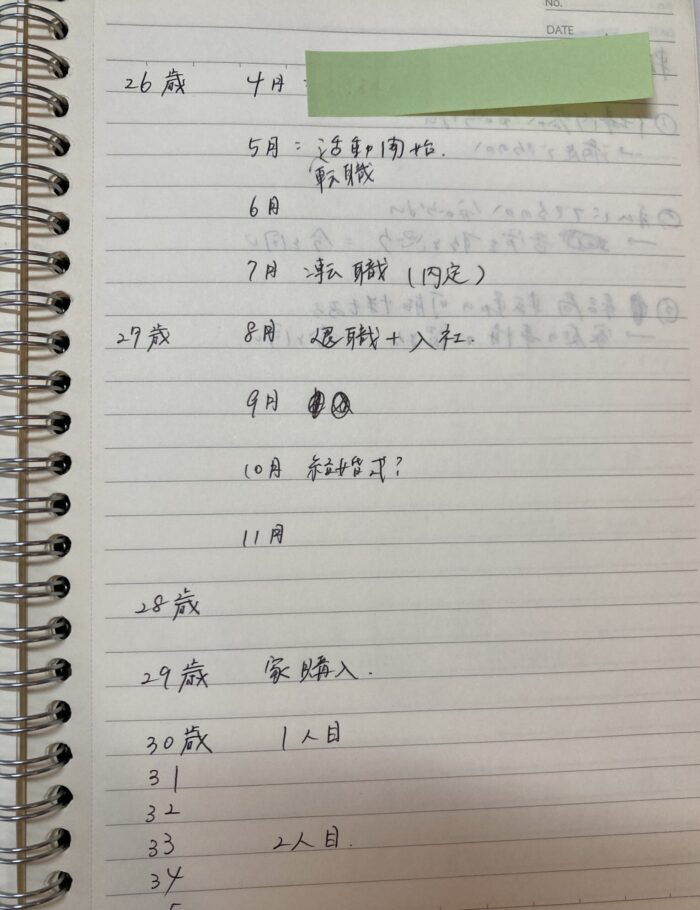 No.
DATE
26歳 4月:
5月:活動開始.
転職
6月
7月 転職(内定)
27歳 8月 退職+入社.
9月
10月 結婚式?
11月
28歳
29歳 家購入.
30歳 1人目
31
32
33 2人目.
34